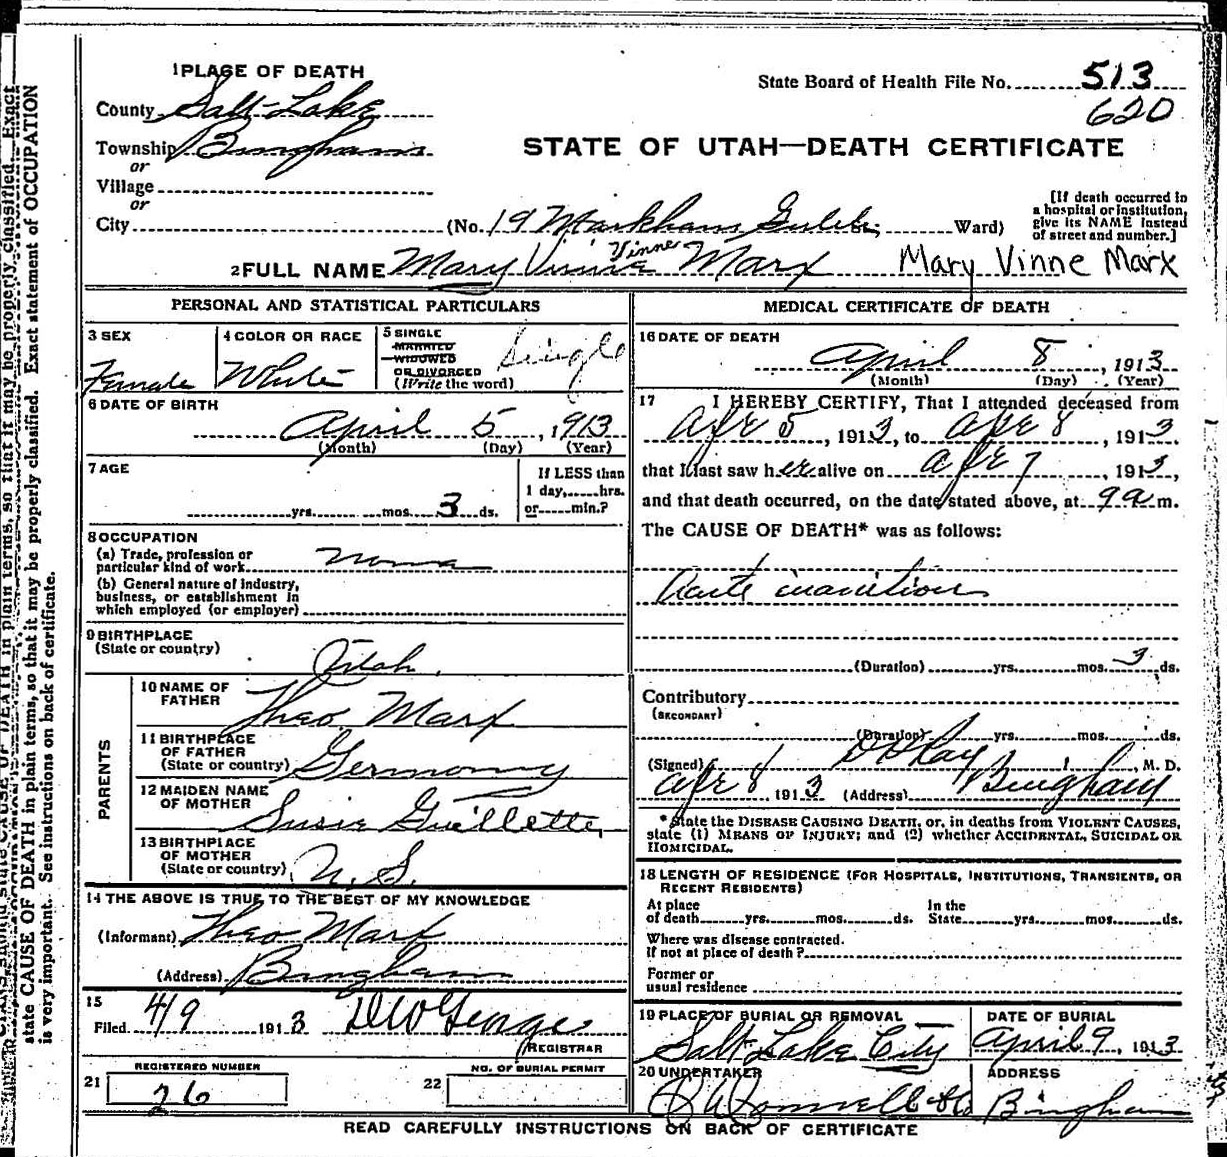 1 PLACE OF DEATH
State Board of Health File No. 513
620
County Salt Lake
Township Bingham
or
Village
or
City
STATE OF UTAH—DEATH CERTIFICATE
(No. 19 Markham Gulch, Ward)
[If death occurred in
a hospital or institution,
give its NAME instead
of street and number.]
Vinne
2 FULL NAME Mary Vinne Marx Mary Vinne Marx
PERSONAL AND STATISTICAL PARTICULARS
3 SEX
Female
4 COLOR OR RACE
White
5 SINGLE
MARRIED
WIDOWED
OR DIVORCED
(Write the word)
Single
6 DATE OF BIRTH
April 5, 1913
(Month) (Day) (Year)
7 AGE
yrs. mos. 3 ds.
If LESS than
1 day, hrs.
or min.?
8 OCCUPATION
(a) Trade, profession or
particular kind of work
(b) General nature of industry,
business, or establishment in
which employed (or employer)
9 BIRTHPLACE
(State or country)
Utah
PARENTS
10 NAME OF
FATHER
Theo Marx
11 BIRTHPLACE
OF FATHER
(State or country) Germany
12 MAIDEN NAME
OF MOTHER
Susie Guillette
13 BIRTHPLACE
OF MOTHER
(State or country) U. S.
14 THE ABOVE IS TRUE TO THE BEST OF MY KNOWLEDGE
(Informant) Theo Marx
(Address) Bingham
15
Filed 4/9 1913
REGISTRAR
REGISTERED NUMBER
21 26
NO. OF BURIAL PERMIT
22
MEDICAL CERTIFICATE OF DEATH
16 DATE OF DEATH
April 8, 1913
(Month) (Day) (Year)
17 I HEREBY CERTIFY, That I attended deceased from
Apr 5, 1913, to Apr 8, 1913.
that I last saw her alive on Apr 7, 1913,
and that death occurred, on the date stated above, at 9 a m.
The CAUSE OF DEATH* was as follows:
Acute inanition
(Duration) yrs. mos. 3 ds.
Contributory
(SECONDARY)
(Duration) yrs. mos. ds.
(Signed) , M. D.
Apr 8 1913 (Address) Bingham
* State the DISEASE CAUSING DEATH, or, in deaths from VIOLENT CAUSES,
state (1) MEANS OF INJURY; and (2) whether ACCIDENTAL, SUICIDAL OR
HOMICIDAL.
18 LENGTH OF RESIDENCE (FOR HOSPITALS, INSTITUTIONS, TRANSIENTS, OR
RECENT RESIDENTS)
At place
of death yrs. mos. ds.
In the
State yrs. mos. ds.
Where was disease contracted.
if not at place of death?
Former or
usual residence
19 PLACE OF BURIAL OR REMOVAL
Salt Lake City
DATE OF BURIAL
April 9, 1913
20 UNDERTAKER
ADDRESS
Bingham
READ CAREFULLY INSTRUCTIONS ON BACK OF CERTIFICATE
state CAUSE OF DEATH in plain terms, so that it may be properly classified. Exact statement of OCCUPATION
is very important. See instructions on back of certificate.